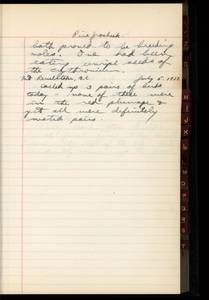 Pine Grosbeak
both proved to be breeding
males. One had been
eating unripe seeds of
the Erythronium.
July 5 1938
Called up 3 pairs of birds
today - none of these were
in the red plumage &
yet all were definitely
mated pairs.